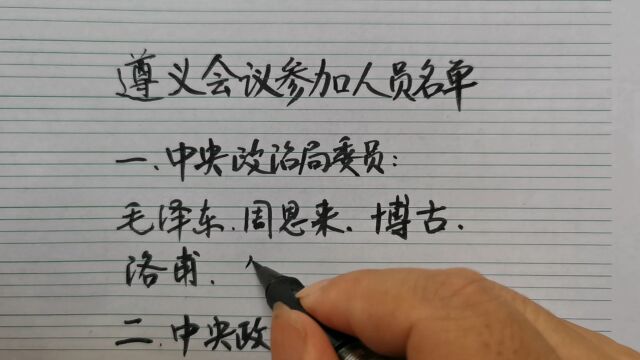 遵义会议参加人员名单
一.中央政治局委员:
毛泽东.周恩来.博古.
洛甫.
二.中央政